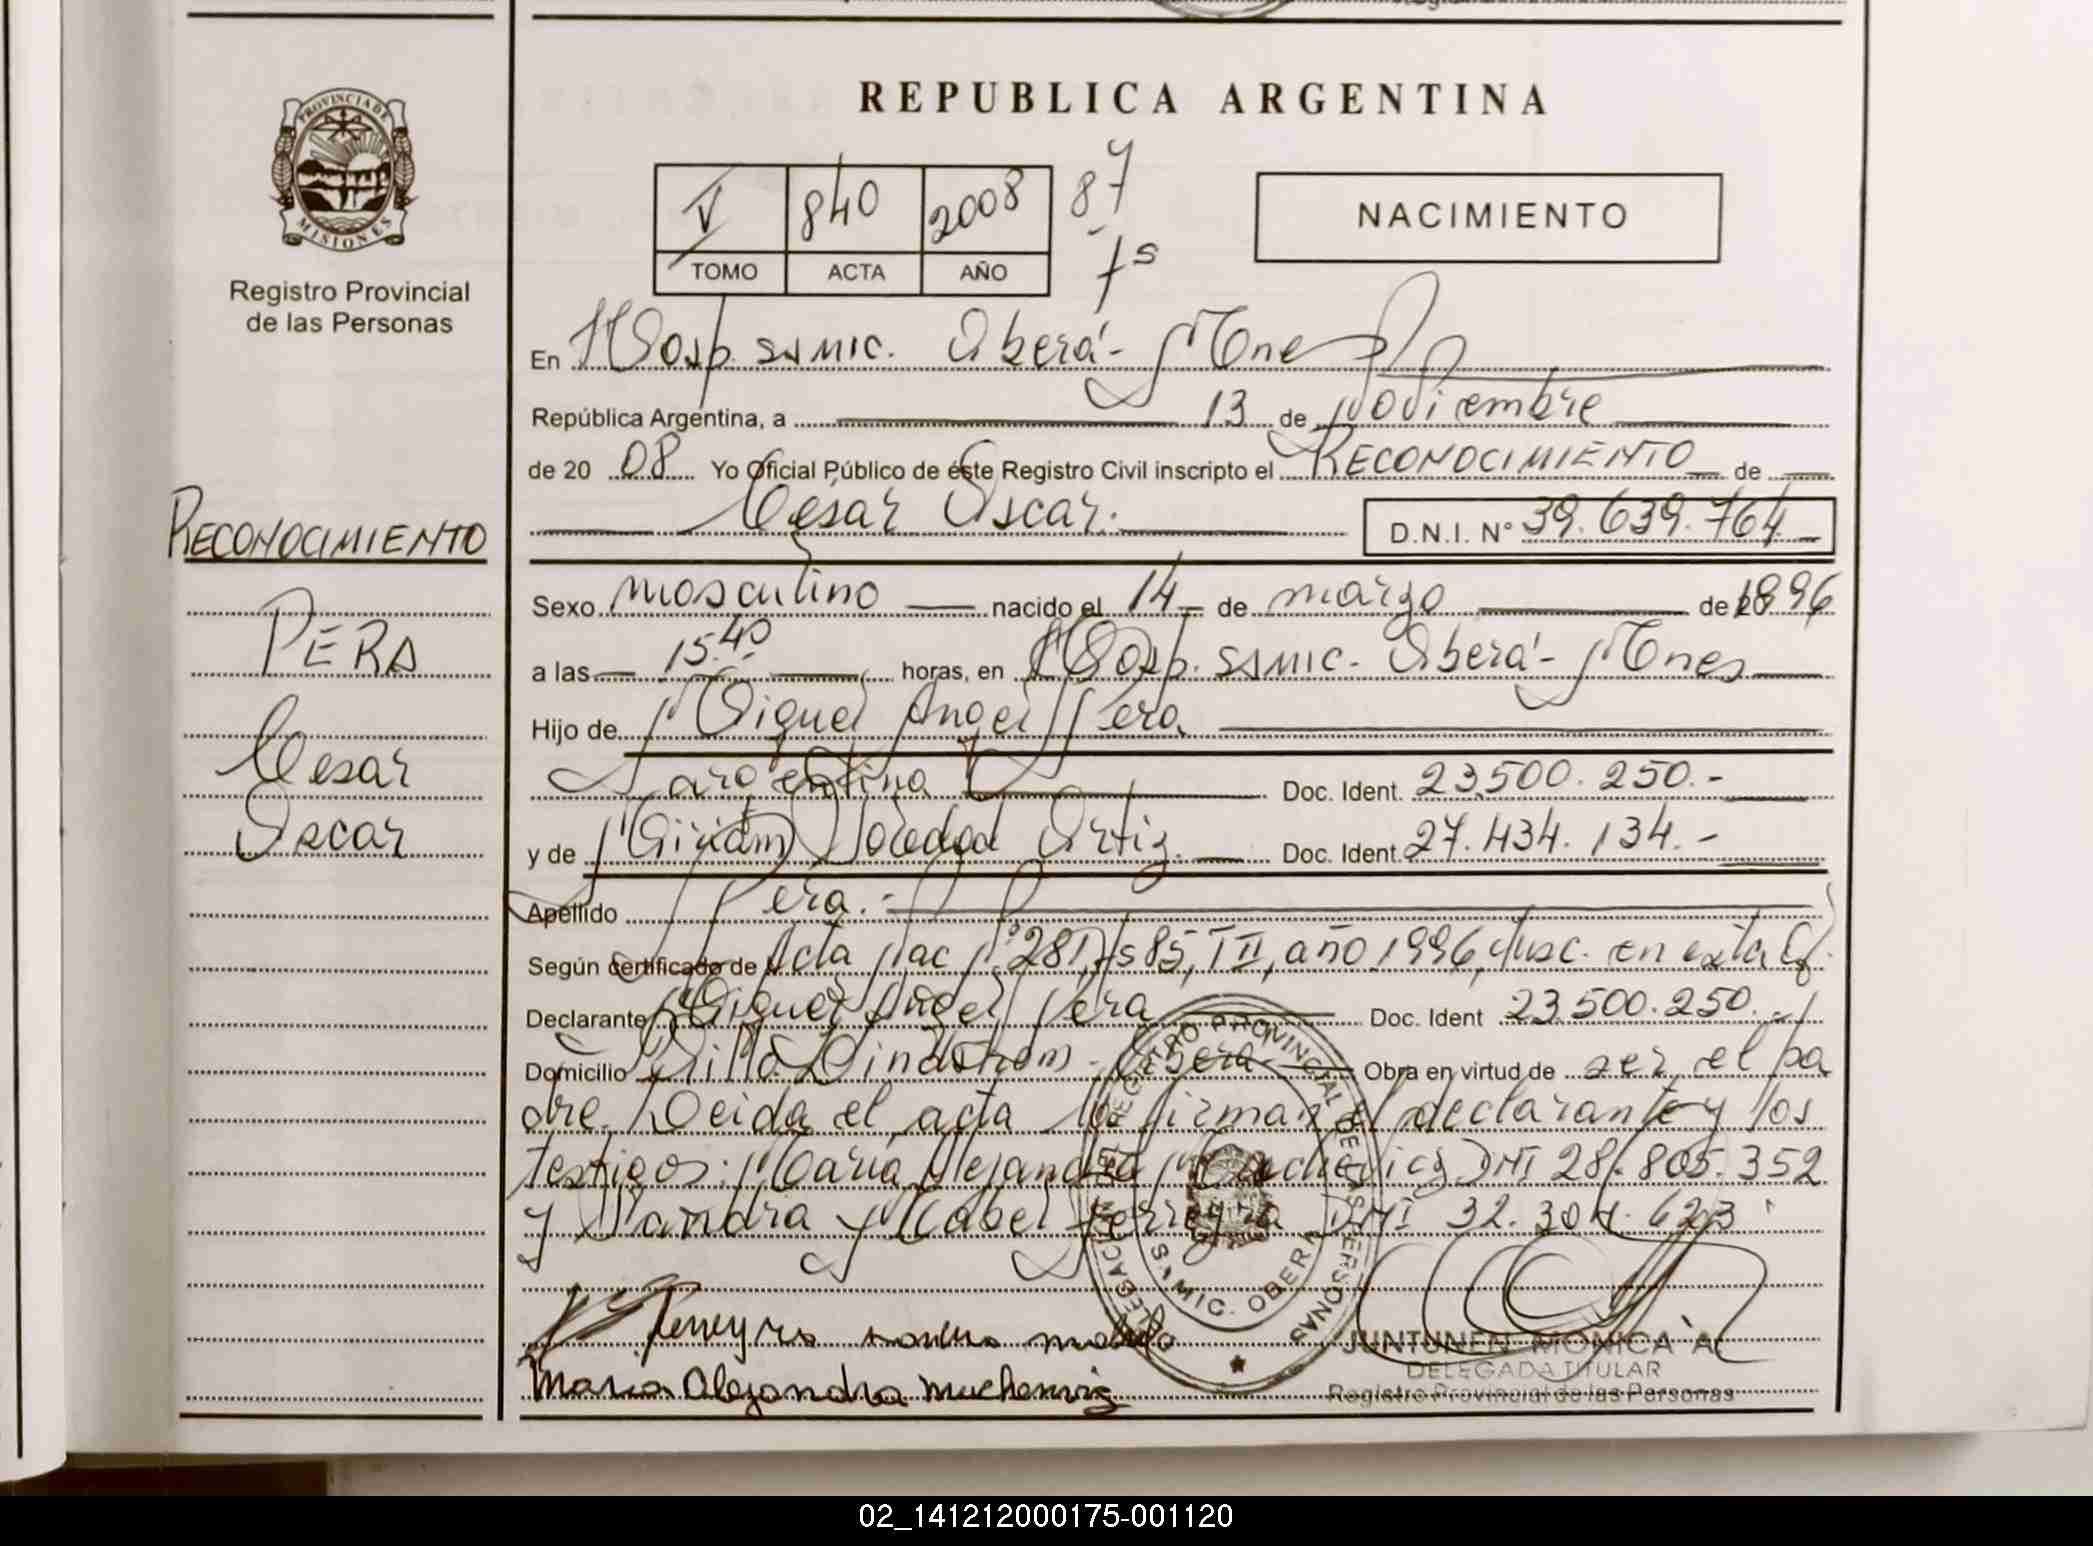 REPUBLICA ARGENTINA
PROVINCIA DE
MISIONES
Registro Provincial
de las Personas
V 840 2008 87
TOMO ACTA AÑO fs
NACIMIENTO
En Hosp. SAMIC. Oberá- Mnes
República Argentina, a 13 de Noviembre
de 20 08 Yo Oficial Público de éste Registro Civil inscripto el RECONOCIMIENTO de
César Oscar. D.N.I. N° 39.639.764
Sexo masculino nacido el 14 de marzo de 1996
a las 15.40 horas, en Hosp. SAMIC. Oberá- Mnes
Hijo de Miguel Angel Pera
argentina Doc. Ident. 23.500.250.-
y de Miriam Soledad Ortiz. Doc. Ident. 27.434.134.-
Apellido Pera.-
Según certificado de Acta Nac N° 281, fs 85, T II, año 1996, Insc. en esta Of.
Declarante Miguel Angel Pera Doc. Ident 23.500.250.-
Domicilio Villa Lindstrom - Oberá Obra en virtud de ser el pa
dre. Leida el acta la firman el declarante y los
testigos: María Alejandra DNI 28.805.352
y Sandra Mabel Ferreyra DNI 32.304.623
RECONOCIMIENTO
PERA
Cesar
Oscar
REGISTRO PROVINCIAL DE LAS PERSONAS
DELEGACION
S.A.MIC. OBERA
Ferreyra sandra mabel
Maria Alejandra
JUNTUNEN MONICA A.
DELEGADA TITULAR
Registro Provincial de las Personas
02_141212000175-001120